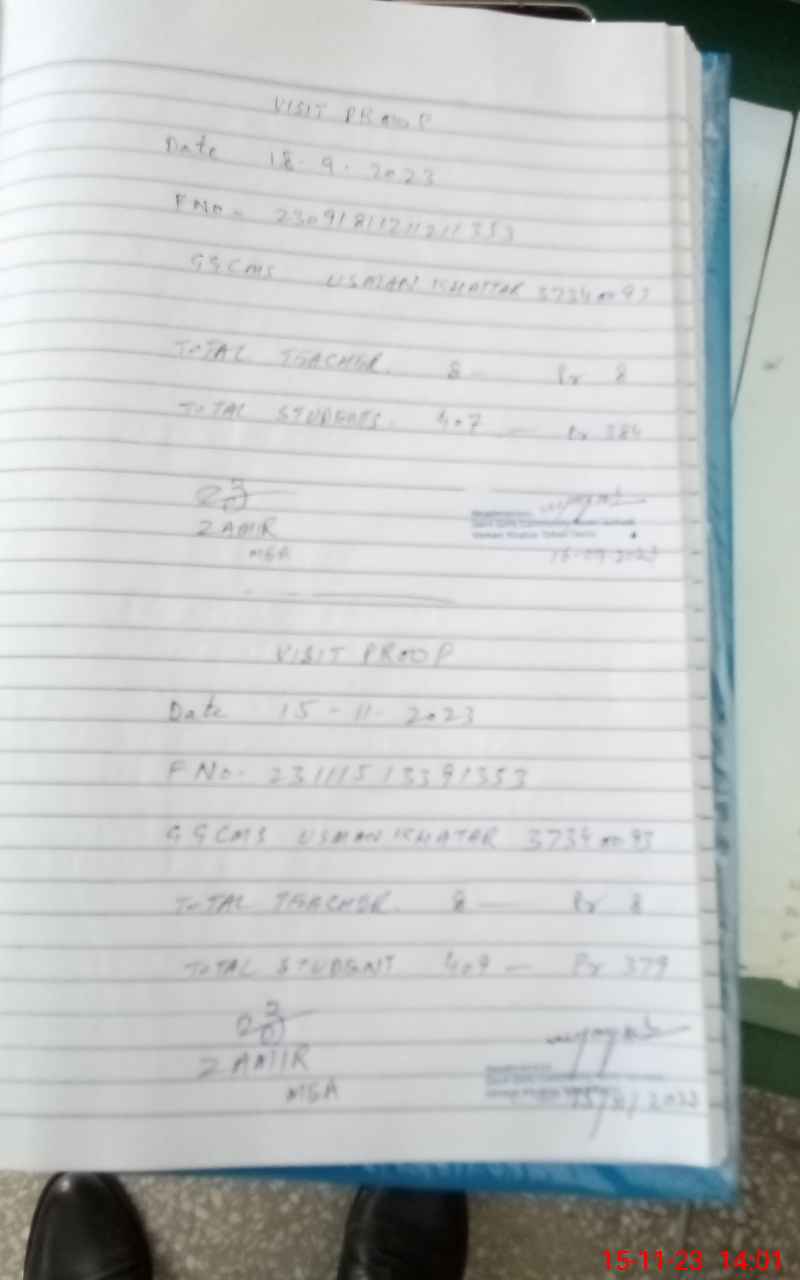 VISIT PROOF
Date 18.9.2023
F No- 23091811211211353
GGCMS USMAN KHATTAR 37340093
TOTAL TEACHER. 8 — Pr 8
TOTAL STUDENTS. 407 — Pr 384
ZAMIR
MEA
VISIT PROOF
Date 15-11-2023
F No- 23111513391353
GGCMS USMAN KHATAR 37340093
TOTAL TEACHER. 8 — Pr 8
TOTAL STUDENT 409 — Pr 379
ZAMIR
MEA
15-11-23 14:01